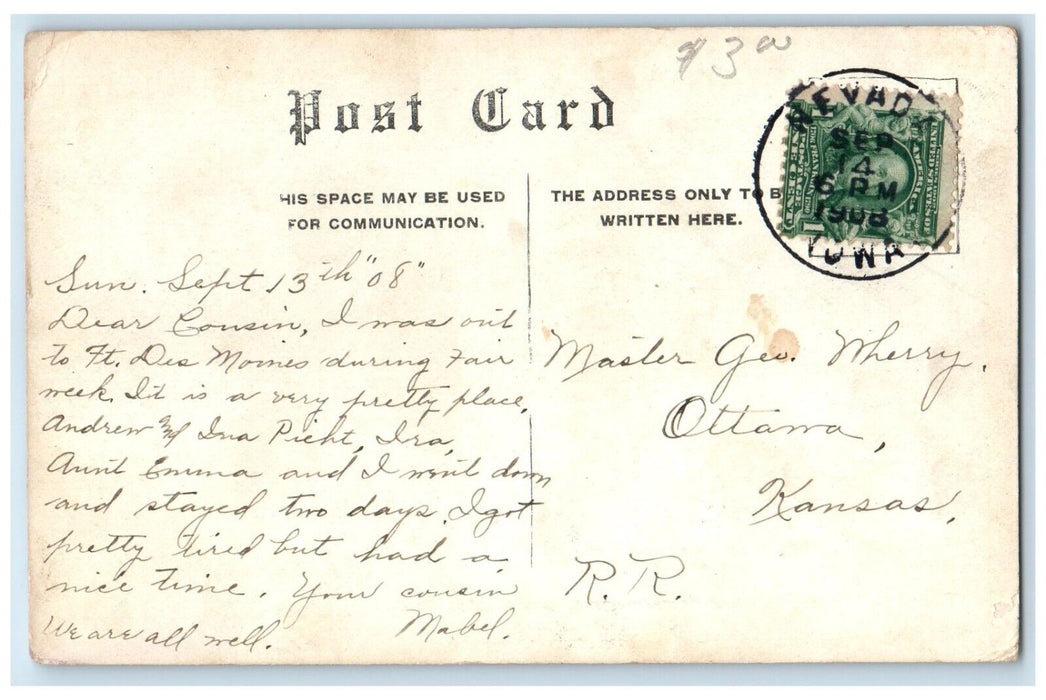 $3 00
Post Card
HIS SPACE MAY BE USED
FOR COMMUNICATION.
THE ADDRESS ONLY TO B
WRITTEN HERE.
NEVAD
SEP
14
6 PM
1908
IOWA
Sun. Sept 13th "08"
Dear Cousin, I was out
to Ft. Des Moines during Fair
week. It is a very pretty place.
Andrew and Ina Picht, Ira,
Aunt Emma and I went down
and stayed two days. I got
pretty tired but had a
nice time. Your cousin
We are all well. Mabel.
Master Geo. Wherry.
Ottawa,
Kansas,
R.R.